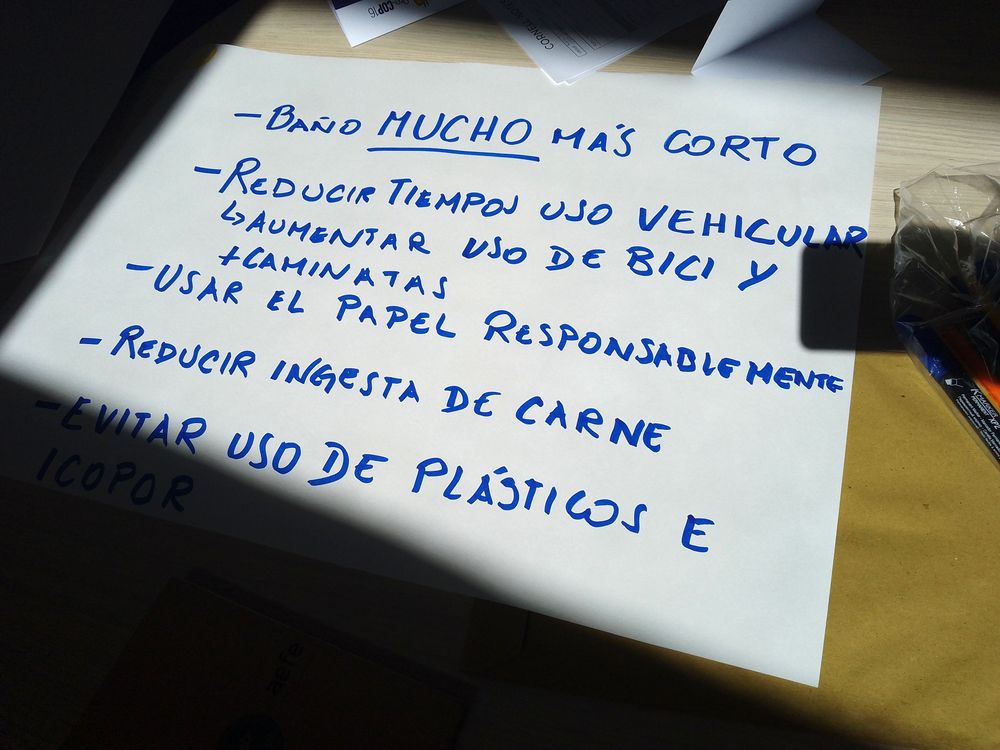 COP16
CORNEL
- BAÑO MUCHO MÁS CORTO
- REDUCIR TIEMPOS USO VEHICULAR
↳ AUMENTAR USO DE BICI Y
+ CAMINATAS
- USAR EL PAPEL RESPONSABLEMENTE
- REDUCIR INGESTA DE CARNE
- EVITAR USO DE PLÁSTICOS E
ICOPOR
aefe